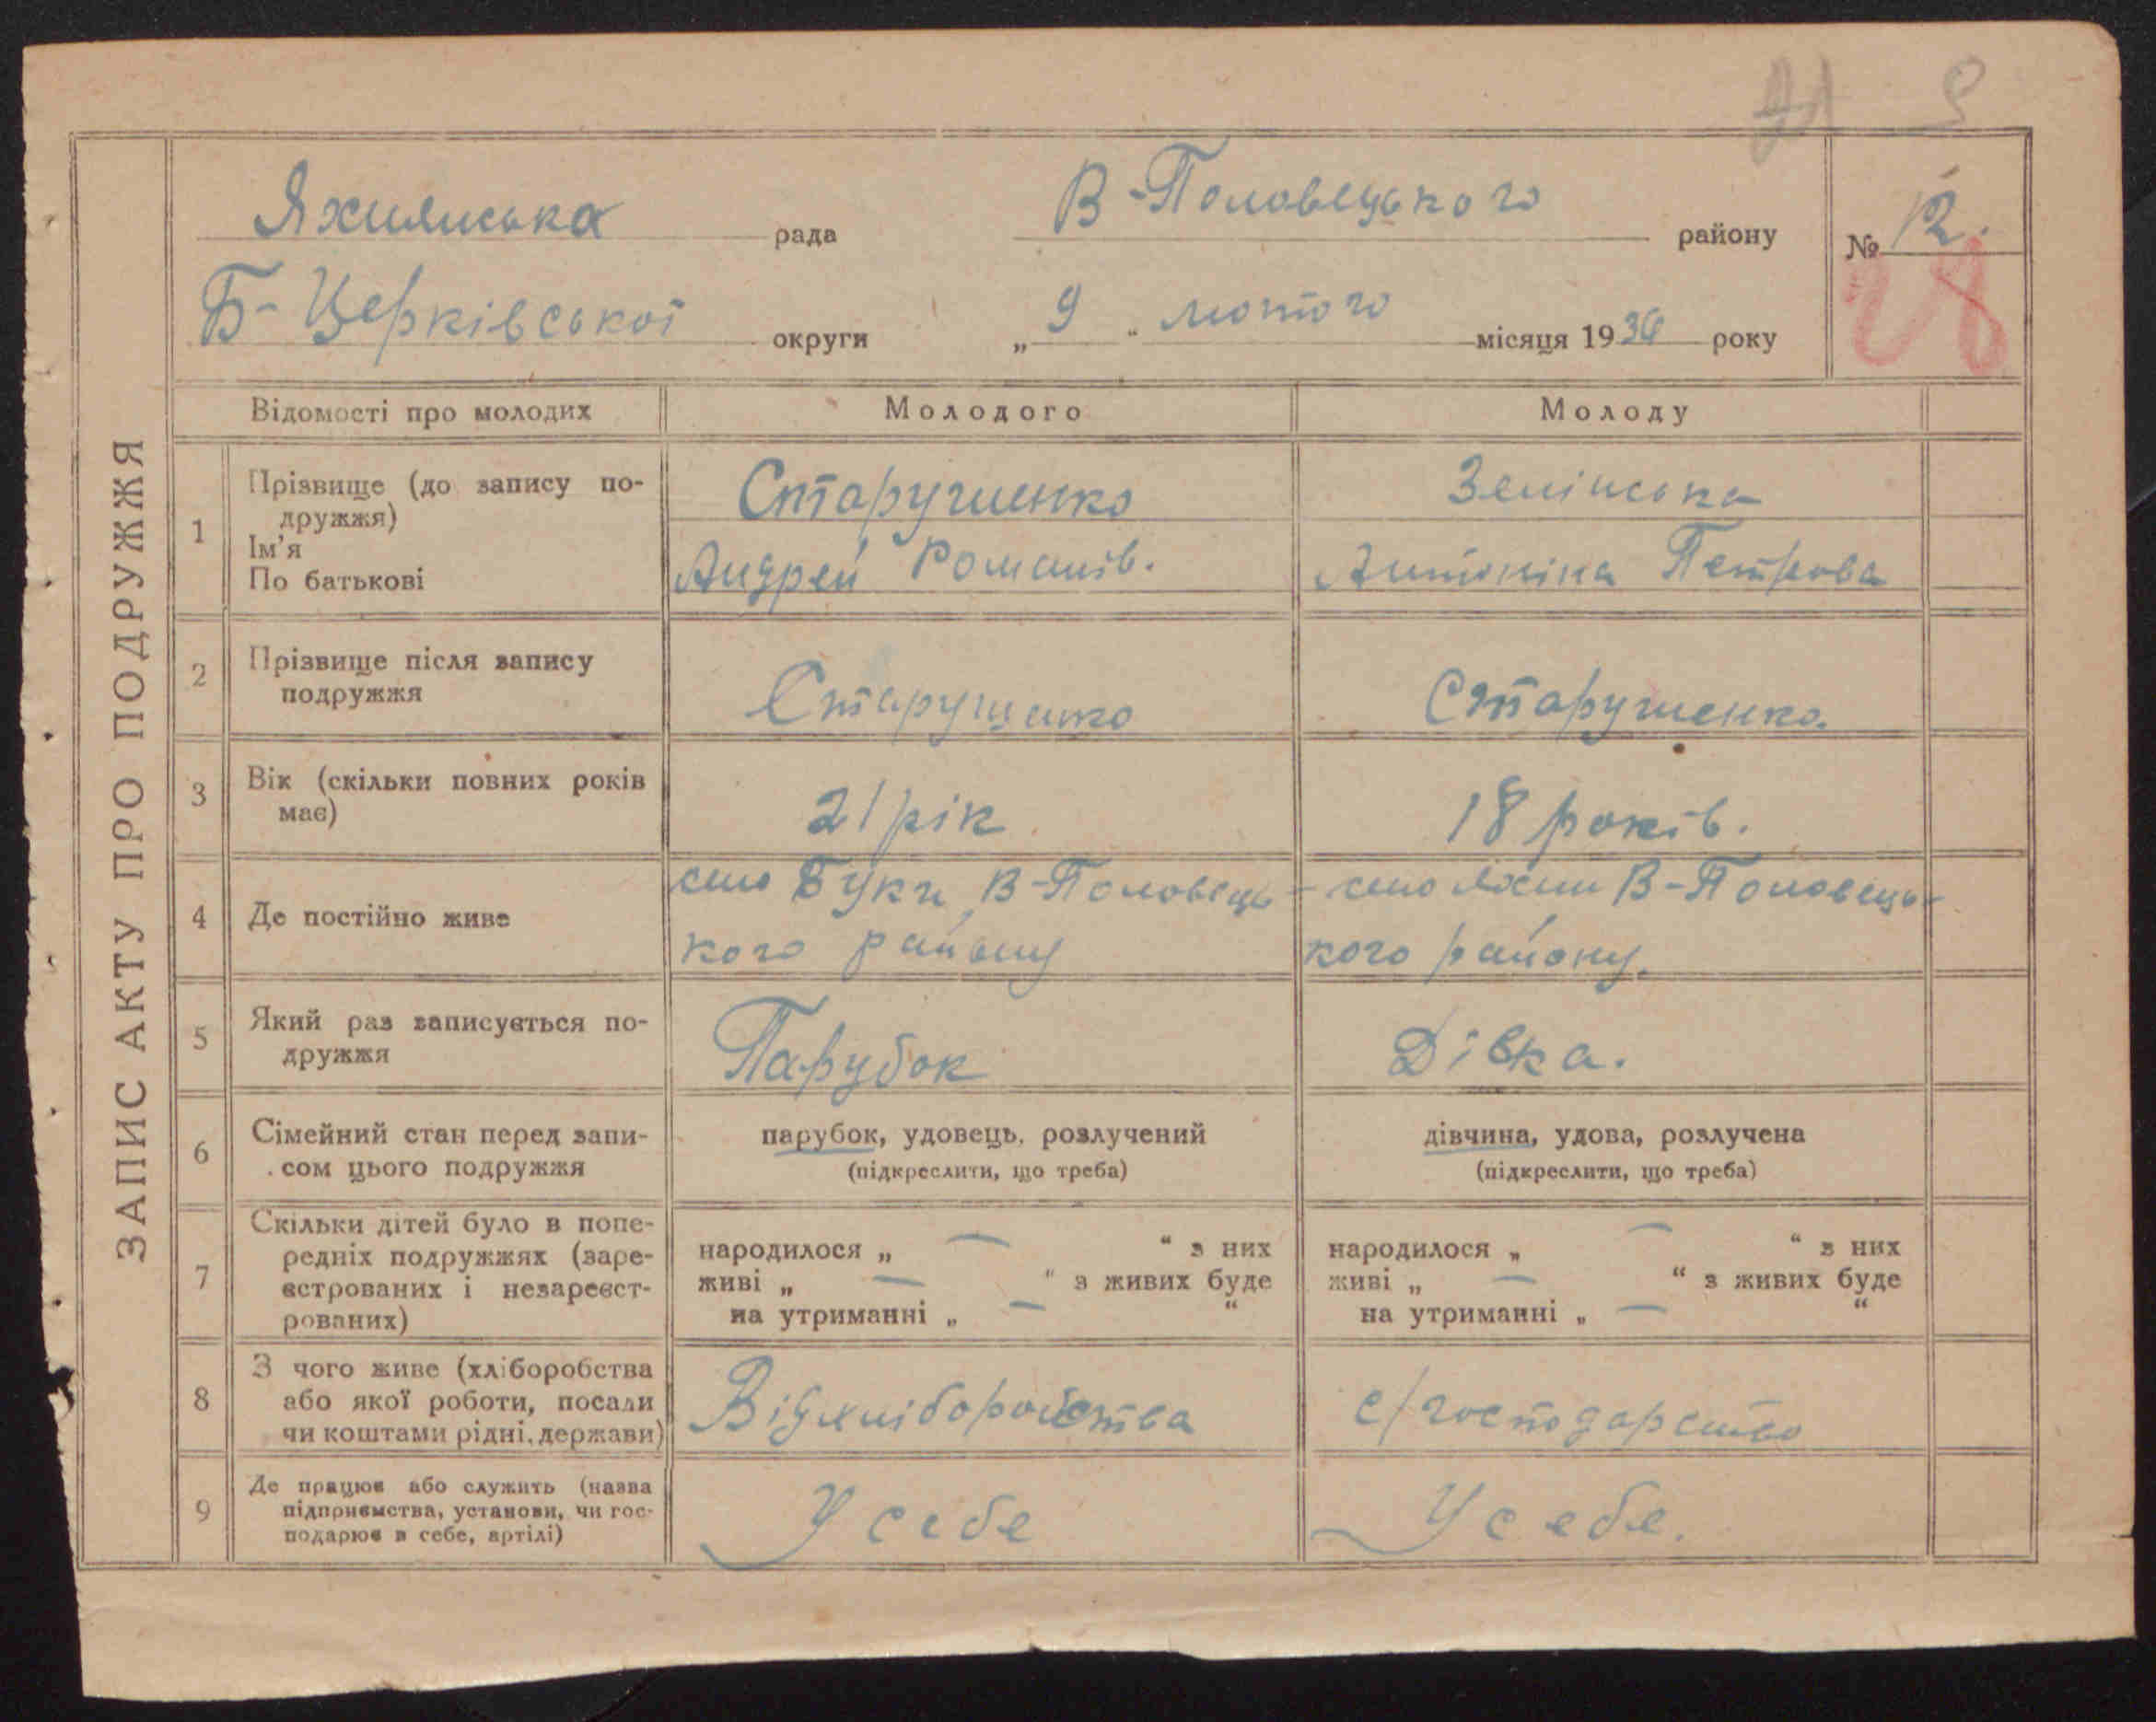 ЗАПИС АКТУ ПРО ПОДРУЖЖЯ
Яхнянська рада В-Половецького району № 12.
28
Б-Церківської округи „9“ лютого місяця 1930 року
Відомості про молодих Молодого Молоду
1 Прізвище (до запису по-
дружжя)
Ім'я
По батькові
Старушенко
Андрей Романів.
Зелінська
Антоніна Петрова
2 Прізвище після запису
подружжя
Старушенко
Старушенко.
3 Вік (скільки повних років
має)
21 рік
18 років.
4 Де постійно живе
село Буки В-Половець-
кого району
село Яхни В-Половець-
кого району.
5 Який раз записується по-
дружжя
Парубок
Дівка.
6 Сімейний стан перед запи-
сом цього подружжя
парубок, удовець, розлучений
(підкреслити, що треба)
дівчина, удова, розлучена
(підкреслити, що треба)
7 Скільки дітей було в попе-
редніх подружжях (заре-
єстрованих і незареєст-
рованих)
народилося „ — “ з них
живі „ — “ з живих буде
на утриманні „ — “
народилося „ — “ з них
живі „ — “ з живих буде
на утриманні „ — “
8 З чого живе (хліборобства
або якої роботи, посади
чи коштами рідні, держави)
Від хліборобства
с/господарство
9 Де працює або служить (назва
підприємства, установи, чи гос-
подарює в себе, артілі)
У себе
У себе.